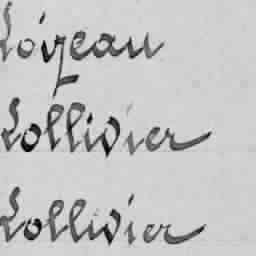 Loyeau
Lollivier
Lollivier